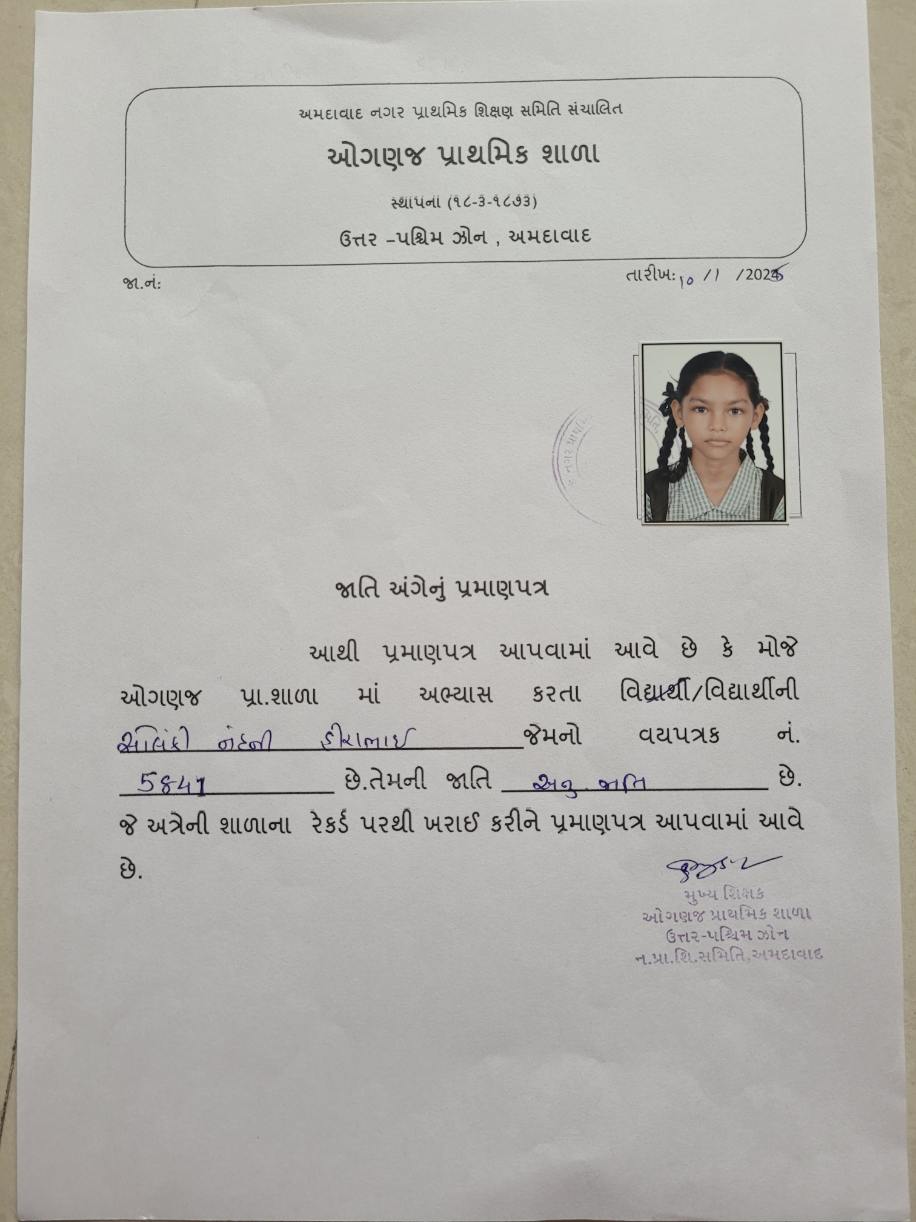 અમદાવાદ નગર પ્રાથમિક શિક્ષણ સમિતિ સંચાલિત
ઓગણજ પ્રાથમિક શાળા
સ્થાપના (૧૮-૩-૧૮૭૩)
ઉત્તર –પશ્ચિમ ઝોન , અમદાવાદ
જા.નં:
તારીખ: 10 /1 /2025
નગર પ્રાથમિ
જાતિ અંગેનું પ્રમાણપત્ર
આથી પ્રમાણપત્ર આપવામાં આવે છે કે મોજે
ઓગણજ પ્રા.શાળા માં અભ્યાસ કરતા વિદ્યાર્થી/વિદ્યાર્થીની
હીરાભાઈ જેમનો વયપત્રક નં.
5841 છે.તેમની જાતિ અનુ. જાતિ છે.
જે અત્રેની શાળાના રેકર્ડ પરથી ખરાઈ કરીને પ્રમાણપત્ર આપવામાં આવે
છે.
મુખ્ય શિક્ષક
ઓગણજ પ્રાથમિક શાળા
ઉત્તર-પશ્ચિમ ઝોન
ન.પ્રા.શિ.સમિતિ,અમદાવાદ